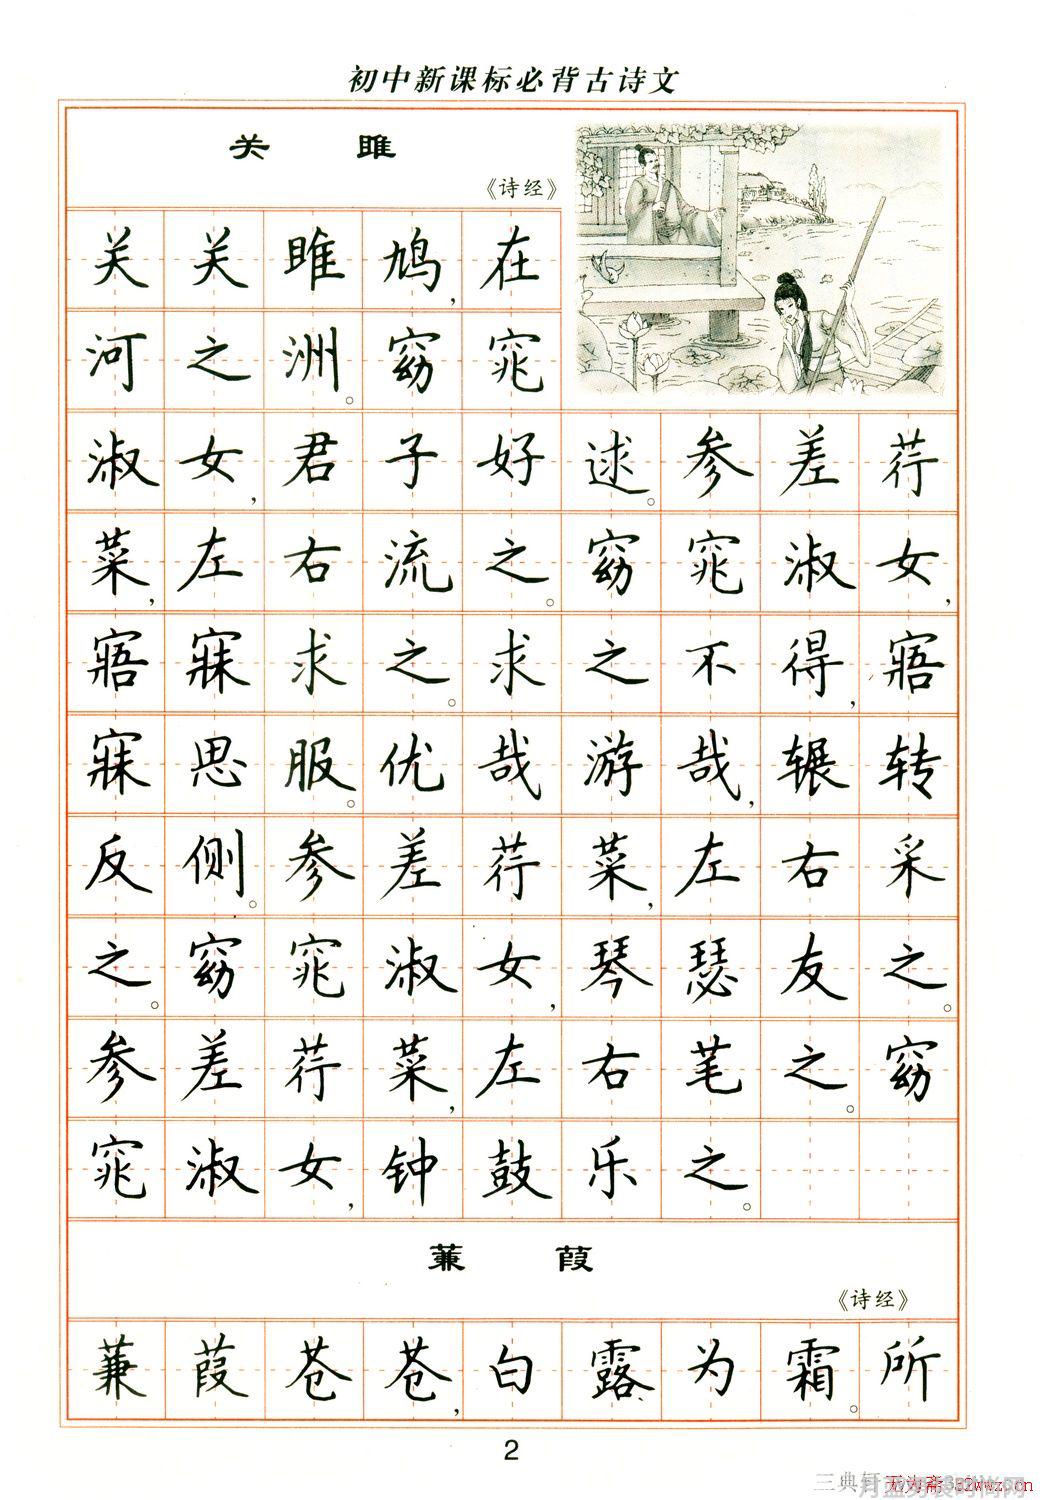 初中新课标必背古诗文
关 雎
《诗经》
关关雎鸠,在
河之洲。窈窕
淑女,君子好逑。参差荇
菜,左右流之。窈窕淑女,
寤寐求之。求之不得,寤
寐思服。优哉游哉,辗转
反侧。参差荇菜,左右采
之。窈窕淑女,琴瑟友之。
参差荇菜,左右芼之。窈
窕淑女,钟鼓乐之。
蒹 葭
《诗经》
蒹葭苍苍,白露为霜。所
2
三典轩